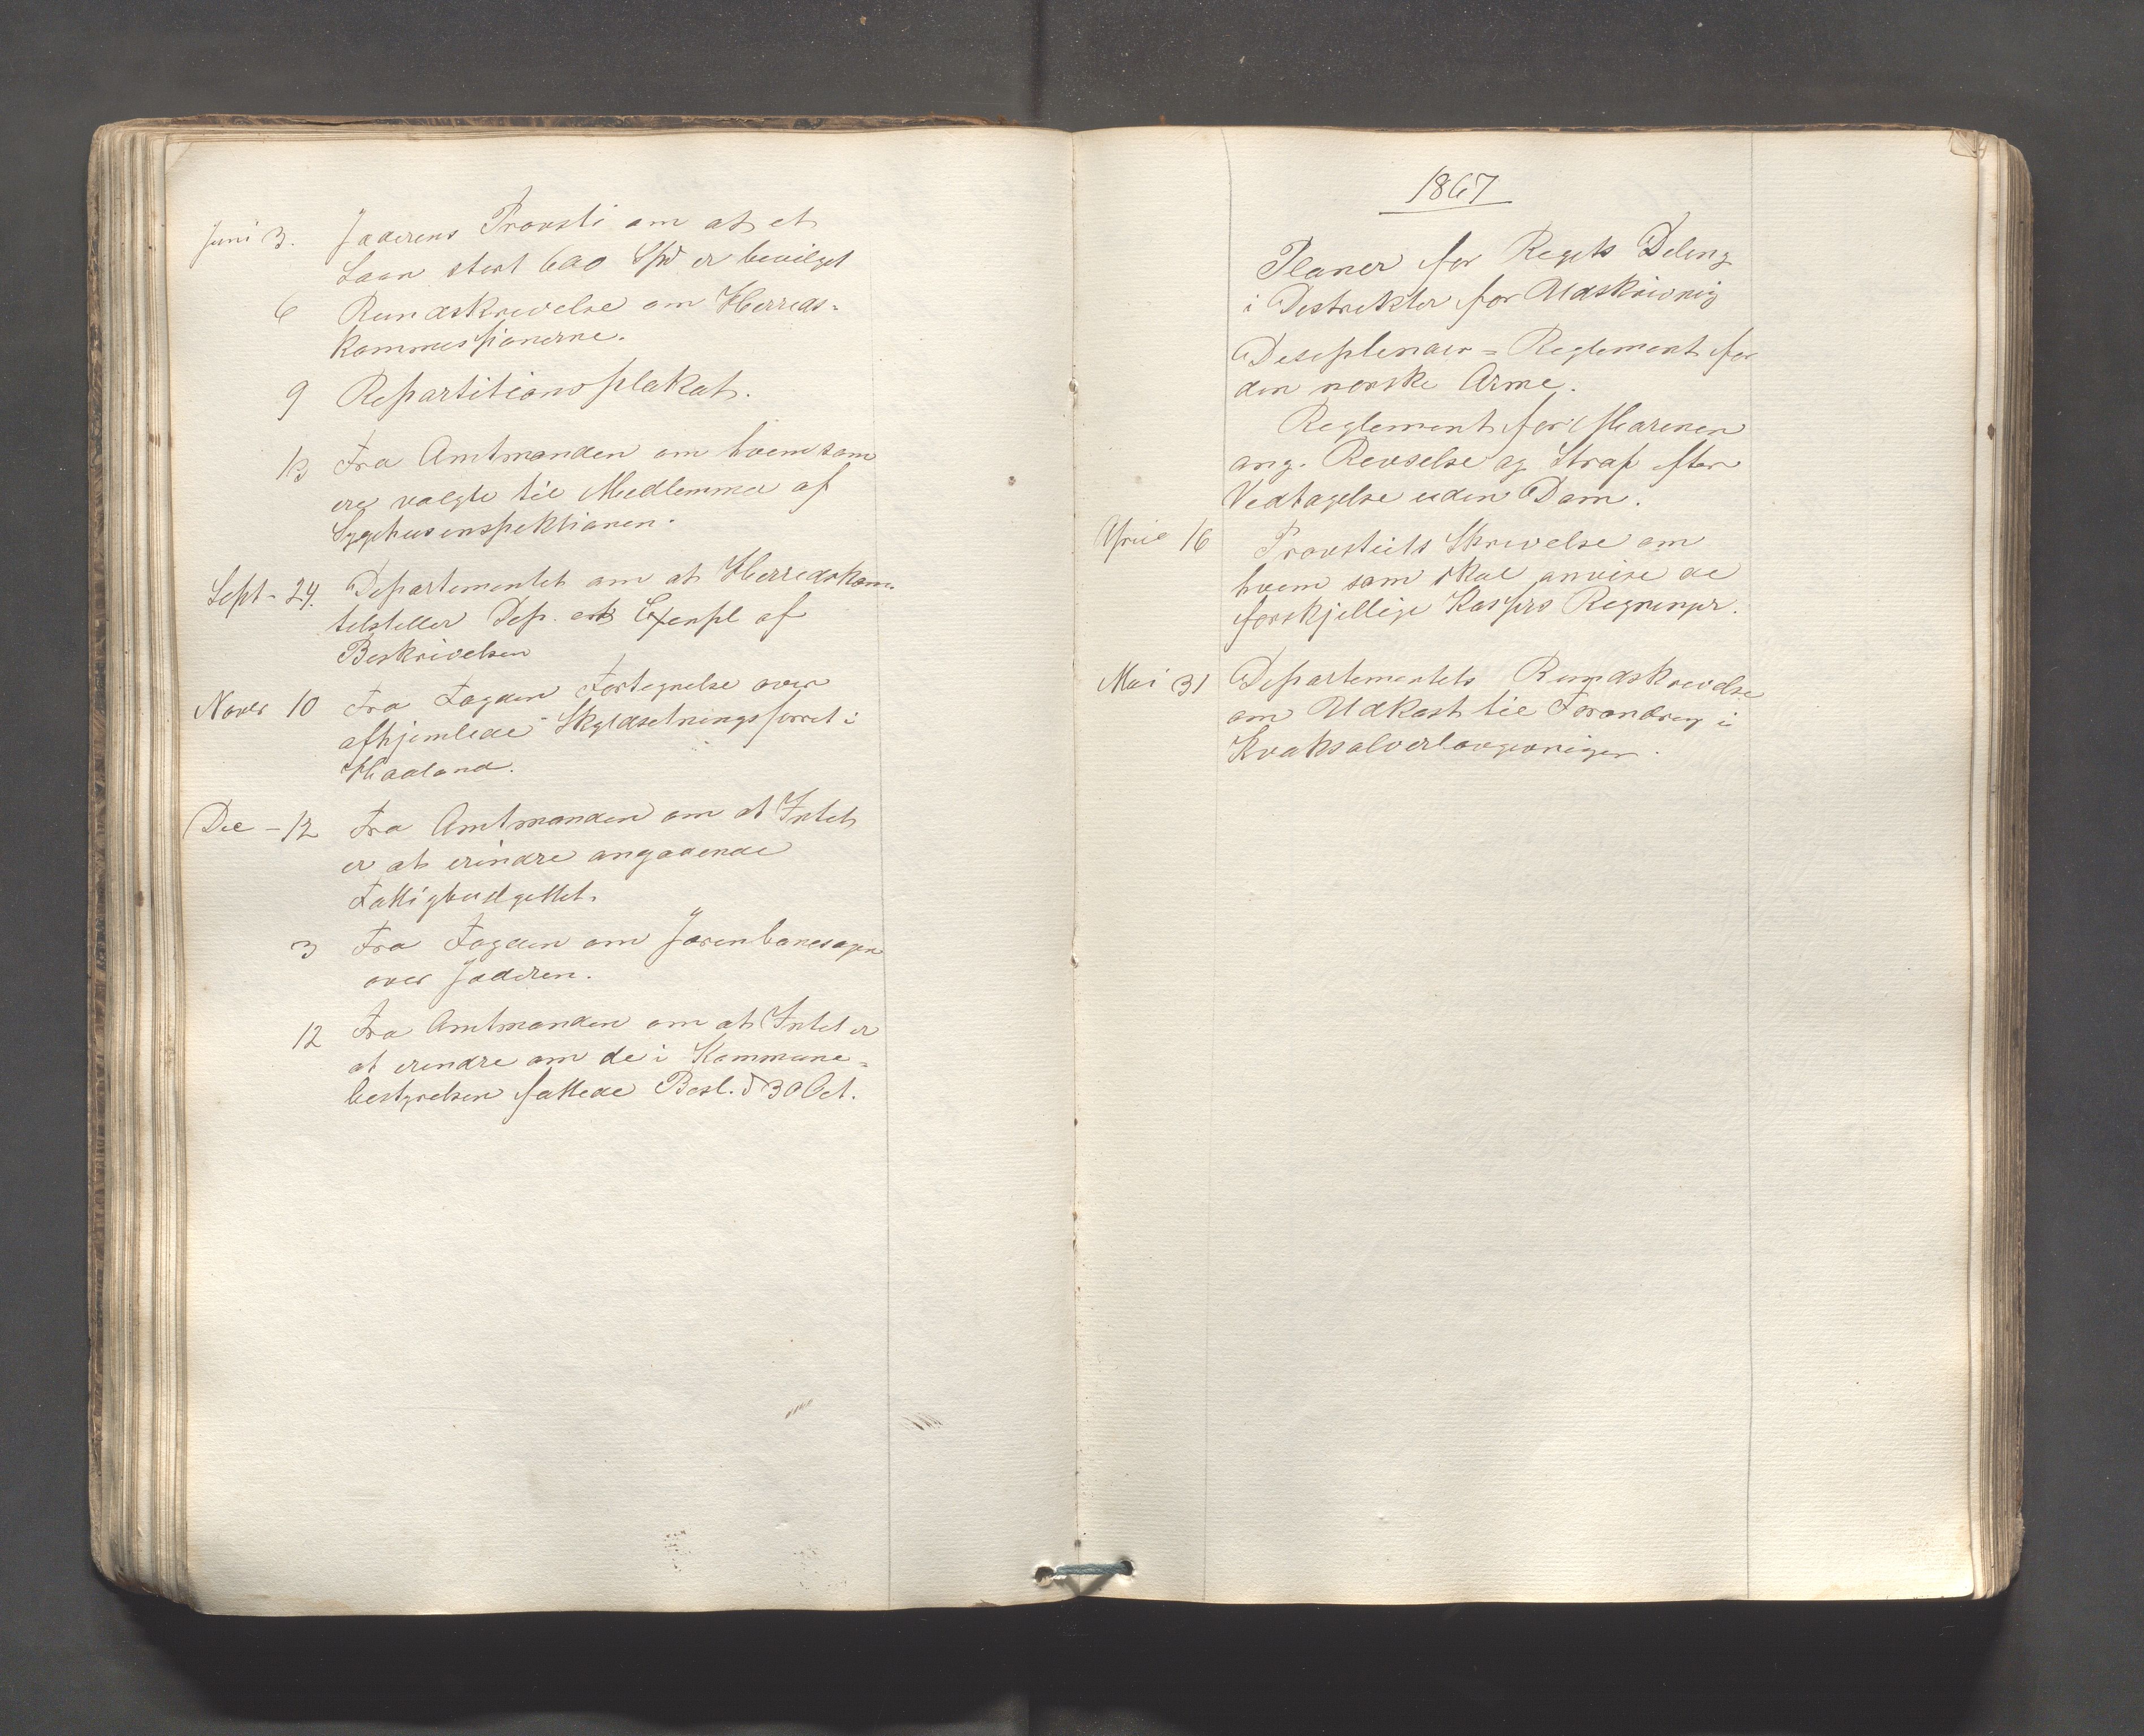 Juni 3. Jæderens Provsti om at et
Laan stort 600 Spd er bevilget
6 Rundskrivelse om Herreds-
kommissionerne.
9 Repartitionsplakat.
13 Fra Amtmanden om hvem som
ere valgte til Medlemmer af
Sygehusinspektionen.
Sept - 24. Departementet om at Herredskom.
tilstiller Dep. et Exenpl af
Beskrivelsen
Novbr 10 Fra Fogden Fortegnelse over
afhjemlede Skyldsetningsforret i
Haaland.
Dec - 12 Fra Amtmanden om at Intet
er at erindre angaaende
Fattigbudgettet.
3 Fra Fogden om Jærenbanesagen
over Jæderen.
12 Fra Amtmanden om at Intet er
at erindre om de i Kommune-
bestyrelsen fattede Besl. d 30 Oct.
1867
Planer for Rigets Deling
i Distrikter for Udskrivnig
Disiplinær = Reglement for
den norske Arme.
Reglement for Marinen
ang. Revselse og Straf efter
Vedtagelse uden Dom.
April 16 Provstiets Skrivelse om
hvem som skal anvise de
forskjellige Kassers Regninger.
Mai 31 Departementets Rundskrivelse
om Udkast til Forandring i
Kvaksalverlovgivnigen.